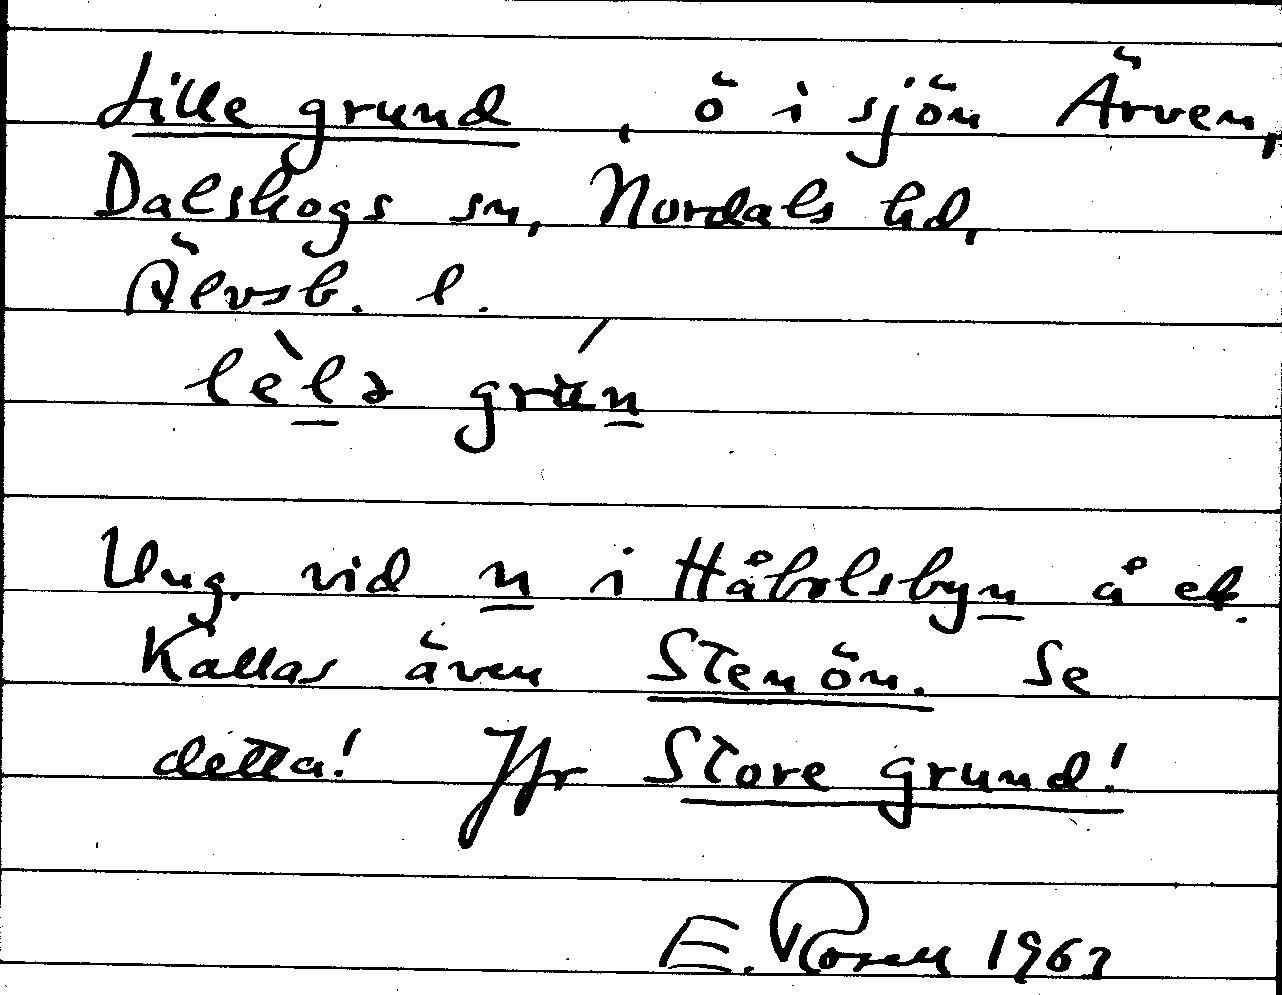 Lille grund, ö i sjön Ärven,
Dalskogs sn, Nordals hd,
Älvsb. l.
lèlə grún
Ung. vid n i Håbolsbyn å ek.
Kallas även Stenön. Se
detta! Jfr Store grund!
E. Rosell 1963